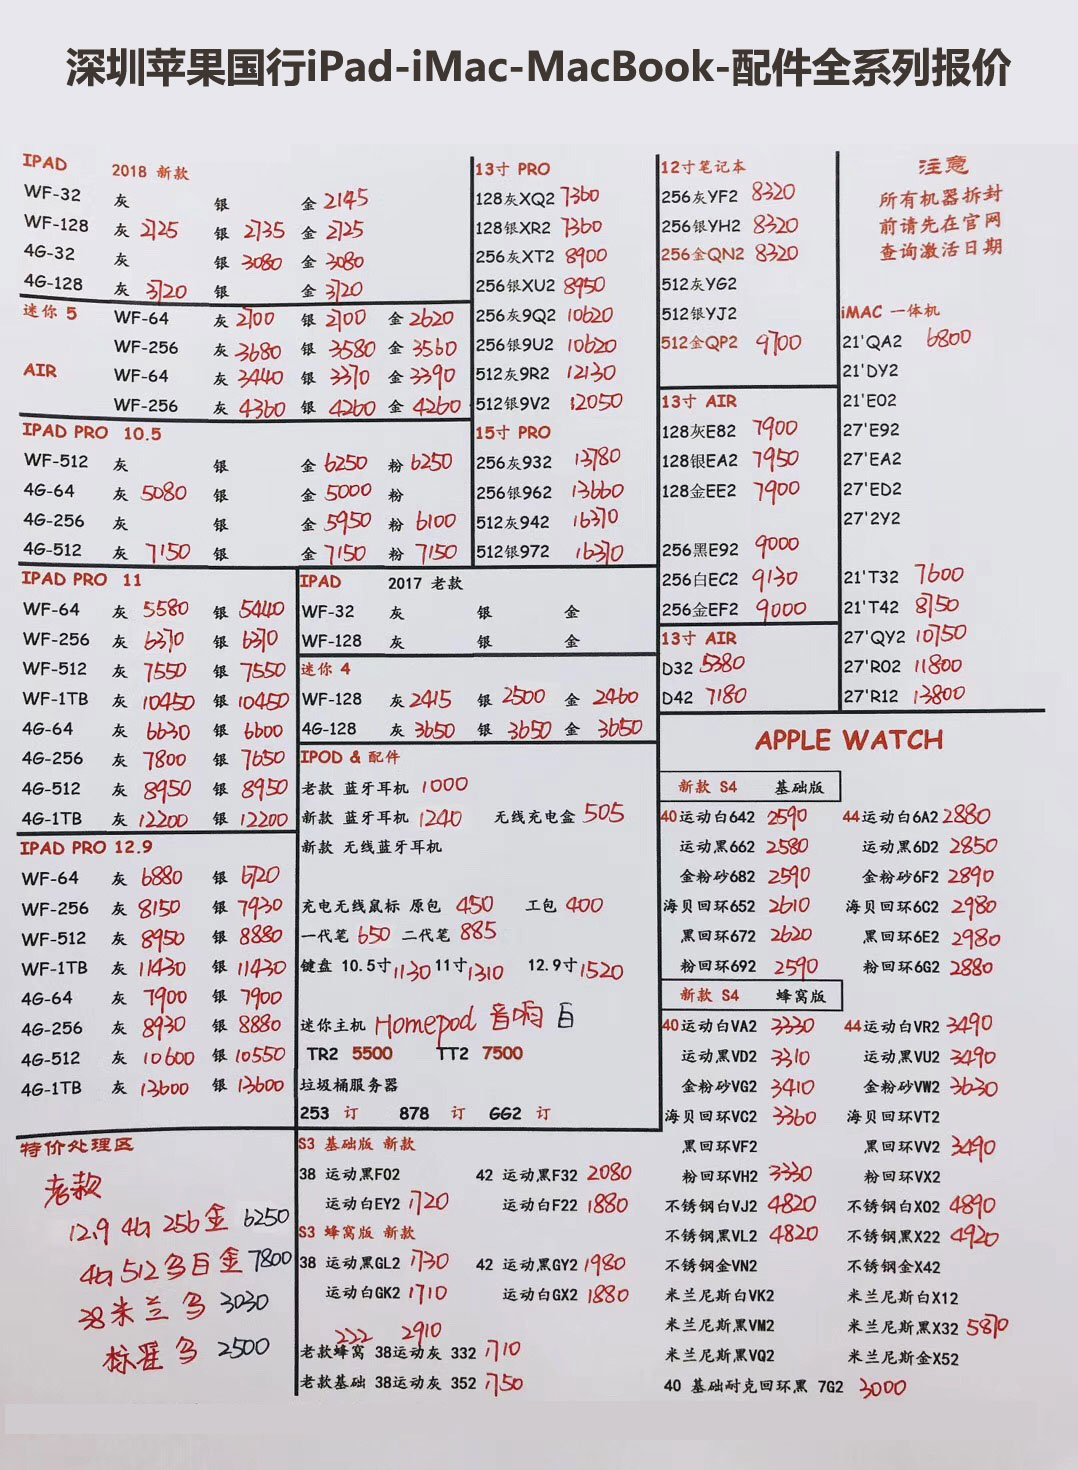 深圳苹果国行iPad-iMac-MacBook-配件全系列报价
IPAD 2018 新款
WF-32 灰 银 金 2145
WF-128 灰 2125 银 2135 金 2125
4G-32 灰 银 3080 金 3080
4G-128 灰 3120 银 金 3120
迷你 5 WF-64 灰 2700 银 2700 金 2620
WF-256 灰 3680 银 3580 金 3560
AIR WF-64 灰 3440 银 3370 金 3390
WF-256 灰 4360 银 4260 金 4260
IPAD PRO 10.5
WF-512 灰 银 金 6250 粉 6250
4G-64 灰 5080 银 金 5000 粉
4G-256 灰 银 金 5950 粉 6100
4G-512 灰 7150 银 金 7150 粉 7150
IPAD PRO 11
WF-64 灰 5580 银 5440
WF-256 灰 6370 银 6370
WF-512 灰 7550 银 7550
WF-1TB 灰 10450 银 10450
4G-64 灰 6630 银 6600
4G-256 灰 7800 银 7650
4G-512 灰 8950 银 8950
4G-1TB 灰 12200 银 12200
IPAD PRO 12.9
WF-64 灰 6880 银 6720
WF-256 灰 8150 银 7930
WF-512 灰 8950 银 8880
WF-1TB 灰 11430 银 11430
4G-64 灰 7900 银 7900
4G-256 灰 8930 银 8880
4G-512 灰 10600 银 10550
4G-1TB 灰 13600 银 13600
特价处理区
老款
12.9 4G 256 金 6250
4G 512 白 金 7800
38 米兰 3030
2500
13寸 PRO
128灰XQ2 7360
128银XR2 7360
256灰XT2 8900
256银XU2 8950
256灰9Q2 10620
256银9U2 10620
512灰9R2 12130
512银9V2 12050
15寸 PRO
256灰932 13780
256银962 13660
512灰942 16370
512银972 16370
IPAD 2017 老款
WF-32 灰 银 金
WF-128 灰 银 金
迷你 4
WF-128 灰 2415 银 2500 金 2460
4G-128 灰 3650 银 3650 金 3650
IPOD & 配件
老款 蓝牙耳机 1000
新款 蓝牙耳机 1240 无线充电盒 505
新款 无线蓝牙耳机
充电无线鼠标 原包 450 工包 400
一代笔 650 二代笔 885
键盘 10.5寸 1130 11寸 1310 12.9寸 1520
迷你主机 Homepod 音响 白
TR2 5500 TT2 7500
垃圾桶服务器
253 订 878 订 GG2 订
S3 基础版 新款
38 运动黑F02 42 运动黑F32 2080
运动白EY2 1720 运动白F22 1880
S3 蜂窝版 新款
38 运动黑GL2 1730 42 运动黑GY2 1980
运动白GK2 1710 运动白GX2 1880
222 2910
老款蜂窝 38运动灰 332 1710
老款基础 38运动灰 352 1750
12寸笔记本
256灰YF2 8320
256银YH2 8320
256金QN2 8320
512灰YG2
512银YJ2
512金QP2 9700
13寸 AIR
128灰E82 7900
128银EA2 7950
128金EE2 7900
256黑E92 9000
256白EC2 9130
256金EF2 9000
13寸 AIR
D32 5380
D42 7180
注意
所有机器拆封
前请先在官网
查询激活日期
iMAC 一体机
21'QA2 6800
21'DY2
21'E02
27'E92
27'EA2
27'ED2
27'2Y2
21'T32 7600
21'T42 8750
27'QY2 10750
27'R02 11800
27'R12 13800
APPLE WATCH
新款 S4 基础版
40运动白642 2590 44运动白6A2 2880
运动黑662 2580 运动黑6D2 2850
金粉砂682 2590 金粉砂6F2 2890
海贝回环652 2610 海贝回环6C2 2980
黑回环672 2620 黑回环6E2 2980
粉回环692 2590 粉回环6G2 2880
新款 S4 蜂窝版
40运动白VA2 3330 44运动白VR2 3490
运动黑VD2 3310 运动黑VU2 3490
金粉砂VG2 3410 金粉砂VW2 3630
海贝回环VC2 3360 海贝回环VT2
黑回环VF2 黑回环VV2 3490
粉回环VH2 3330 粉回环VX2
不锈钢白VJ2 4820 不锈钢白X02 4890
不锈钢黑VL2 4820 不锈钢黑X22 4920
不锈钢金VN2 不锈钢金X42
米兰尼斯白VK2 米兰尼斯白X12
米兰尼斯黑VM2 米兰尼斯黑X32 5870
米兰尼斯黑VQ2 米兰尼斯金X52
40 基础耐克回环黑 7G2 3000